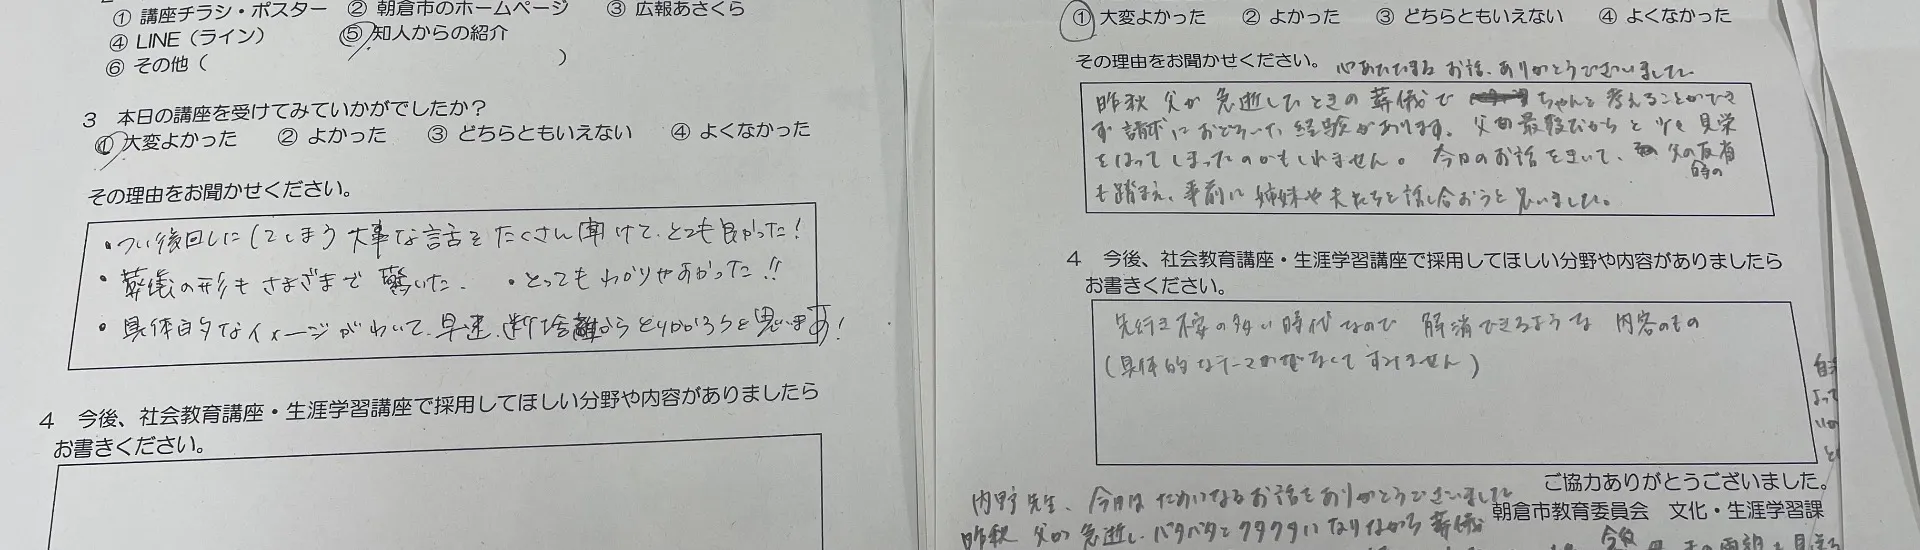 ① 講座チラシ・ポスター ② 朝倉市のホームページ ③ 広報あさくら
④ LINE（ライン） ⑤ 知人からの紹介
⑥ その他（ ）
3 本日の講座を受けてみていかがでしたか？
① 大変よかった ② よかった ③ どちらともいえない ④ よくなかった
その理由をお聞かせください。
・つい後回しにしてしまう 大事な話をたくさん聞けて、とても良かった！
・葬儀の形もさまざまで驚いた。 ・とってもわかりやすかった!!
・具体的なイメージがわいて、早速、断捨離からとりかかろうと思います！
4 今後、社会教育講座・生涯学習講座で採用してほしい分野や内容がありましたら
お書きください。
① 大変よかった ② よかった ③ どちらともいえない ④ よくなかった
その理由をお聞かせください。 心あたたまるお話、ありがとうございました。
昨秋 父が急逝したときの葬儀で ちゃんと考えることができ
ず 請求におどろいた経験があります。 父の最後だからと少々見栄
をはってしまったのかもしれません。 今日のお話をきいて、父の時の反省
も踏まえ、事前に姉妹や夫たちと話し合おうと思いました。
4 今後、社会教育講座・生涯学習講座で採用してほしい分野や内容がありましたら
お書きください。
先行き不安の多い時代なので 解消できるような 内容のもの
（具体的なテーマがでなくてすみません）
ご協力ありがとうございました。
朝倉市教育委員会 文化・生涯学習課
内野先生、今日はためになるお話をありがとうございました
昨秋 父が急逝し、バタバタとクタクタになりながら葬儀